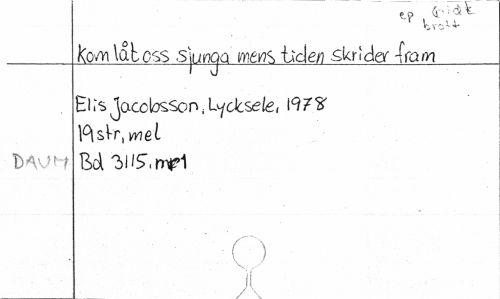 ep G.idk
brott
Kom låt oss sjunga mens tiden skrider fram
Elis Jacobsson, Lycksele, 1978
19 str, mel
DAUM Bd 3115.